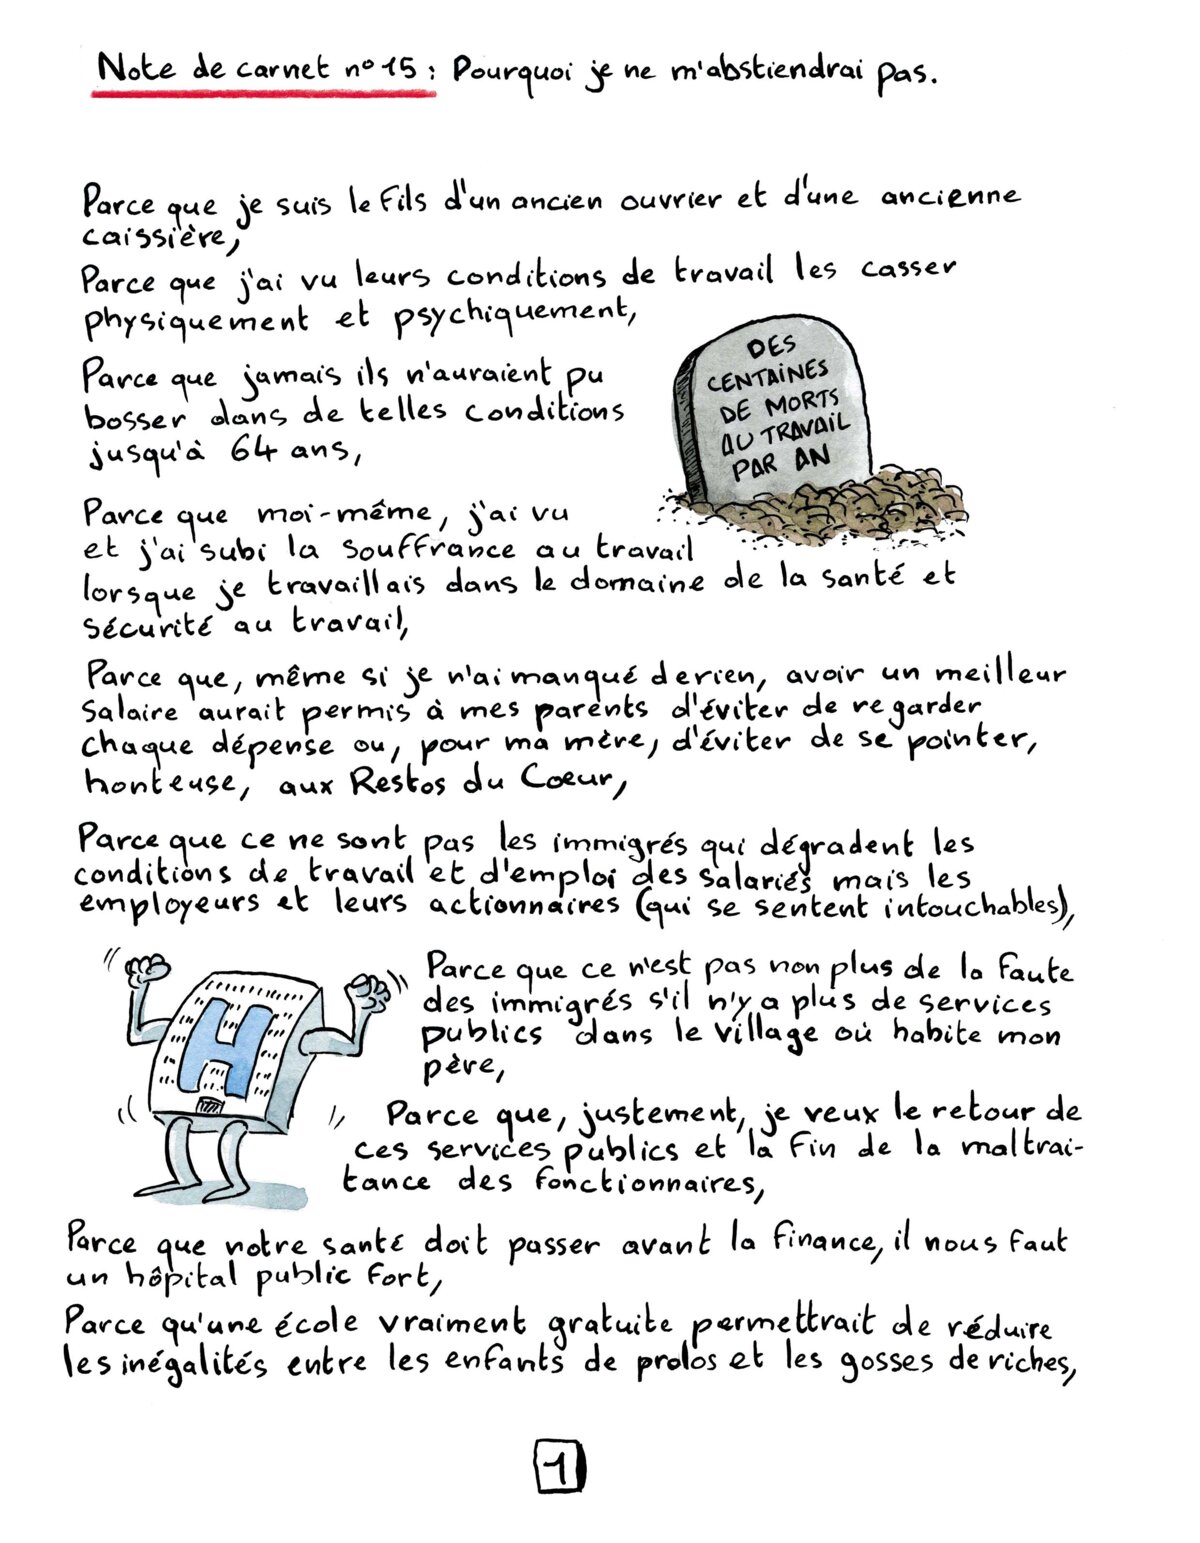 Note de carnet n°15 : Pourquoi je ne m'abstiendrai pas.
Parce que je suis le fils d'un ancien ouvrier et d'une ancienne
caissière,
Parce que j'ai vu leurs conditions de travail les casser
physiquement et psychiquement,
Parce que jamais ils n'auraient pu
bosser dans de telles conditions
jusqu'à 64 ans,
DES
CENTAINES
DE MORTS
AU TRAVAIL
PAR AN
Parce que moi-même, j'ai vu
et j'ai subi la souffrance au travail
lorsque je travaillais dans le domaine de la santé et
sécurité au travail,
Parce que, même si je n'ai manqué de rien, avoir un meilleur
salaire aurait permis à mes parents d'éviter de regarder
chaque dépense ou, pour ma mère, d'éviter de se pointer,
honteuse, aux Restos du Coeur,
Parce que ce ne sont pas les immigrés qui dégradent les
conditions de travail et d'emploi des salariés mais les
employeurs et leurs actionnaires (qui se sentent intouchables),
H
Parce que ce n'est pas non plus de la faute
des immigrés s'il n'y a plus de services
publics dans le village où habite mon
père,
Parce que, justement, je veux le retour de
ces services publics et la fin de la maltrai-
tance des fonctionnaires,
Parce que notre santé doit passer avant la finance, il nous faut
un hôpital public fort,
Parce qu'une école vraiment gratuite permettrait de réduire
les inégalités entre les enfants de prolos et les gosses de riches,
1